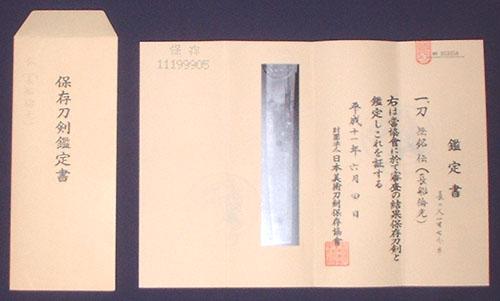 保存刀剣鑑定書
保存
11199905
鑑定書
一、刀 無銘 伝(長船倫光)
右は当協會に於て審査の結果保存刀剣と
鑑定しこれを証する
平成十一年六月四日
財團法人日本美術刀剣保存協會